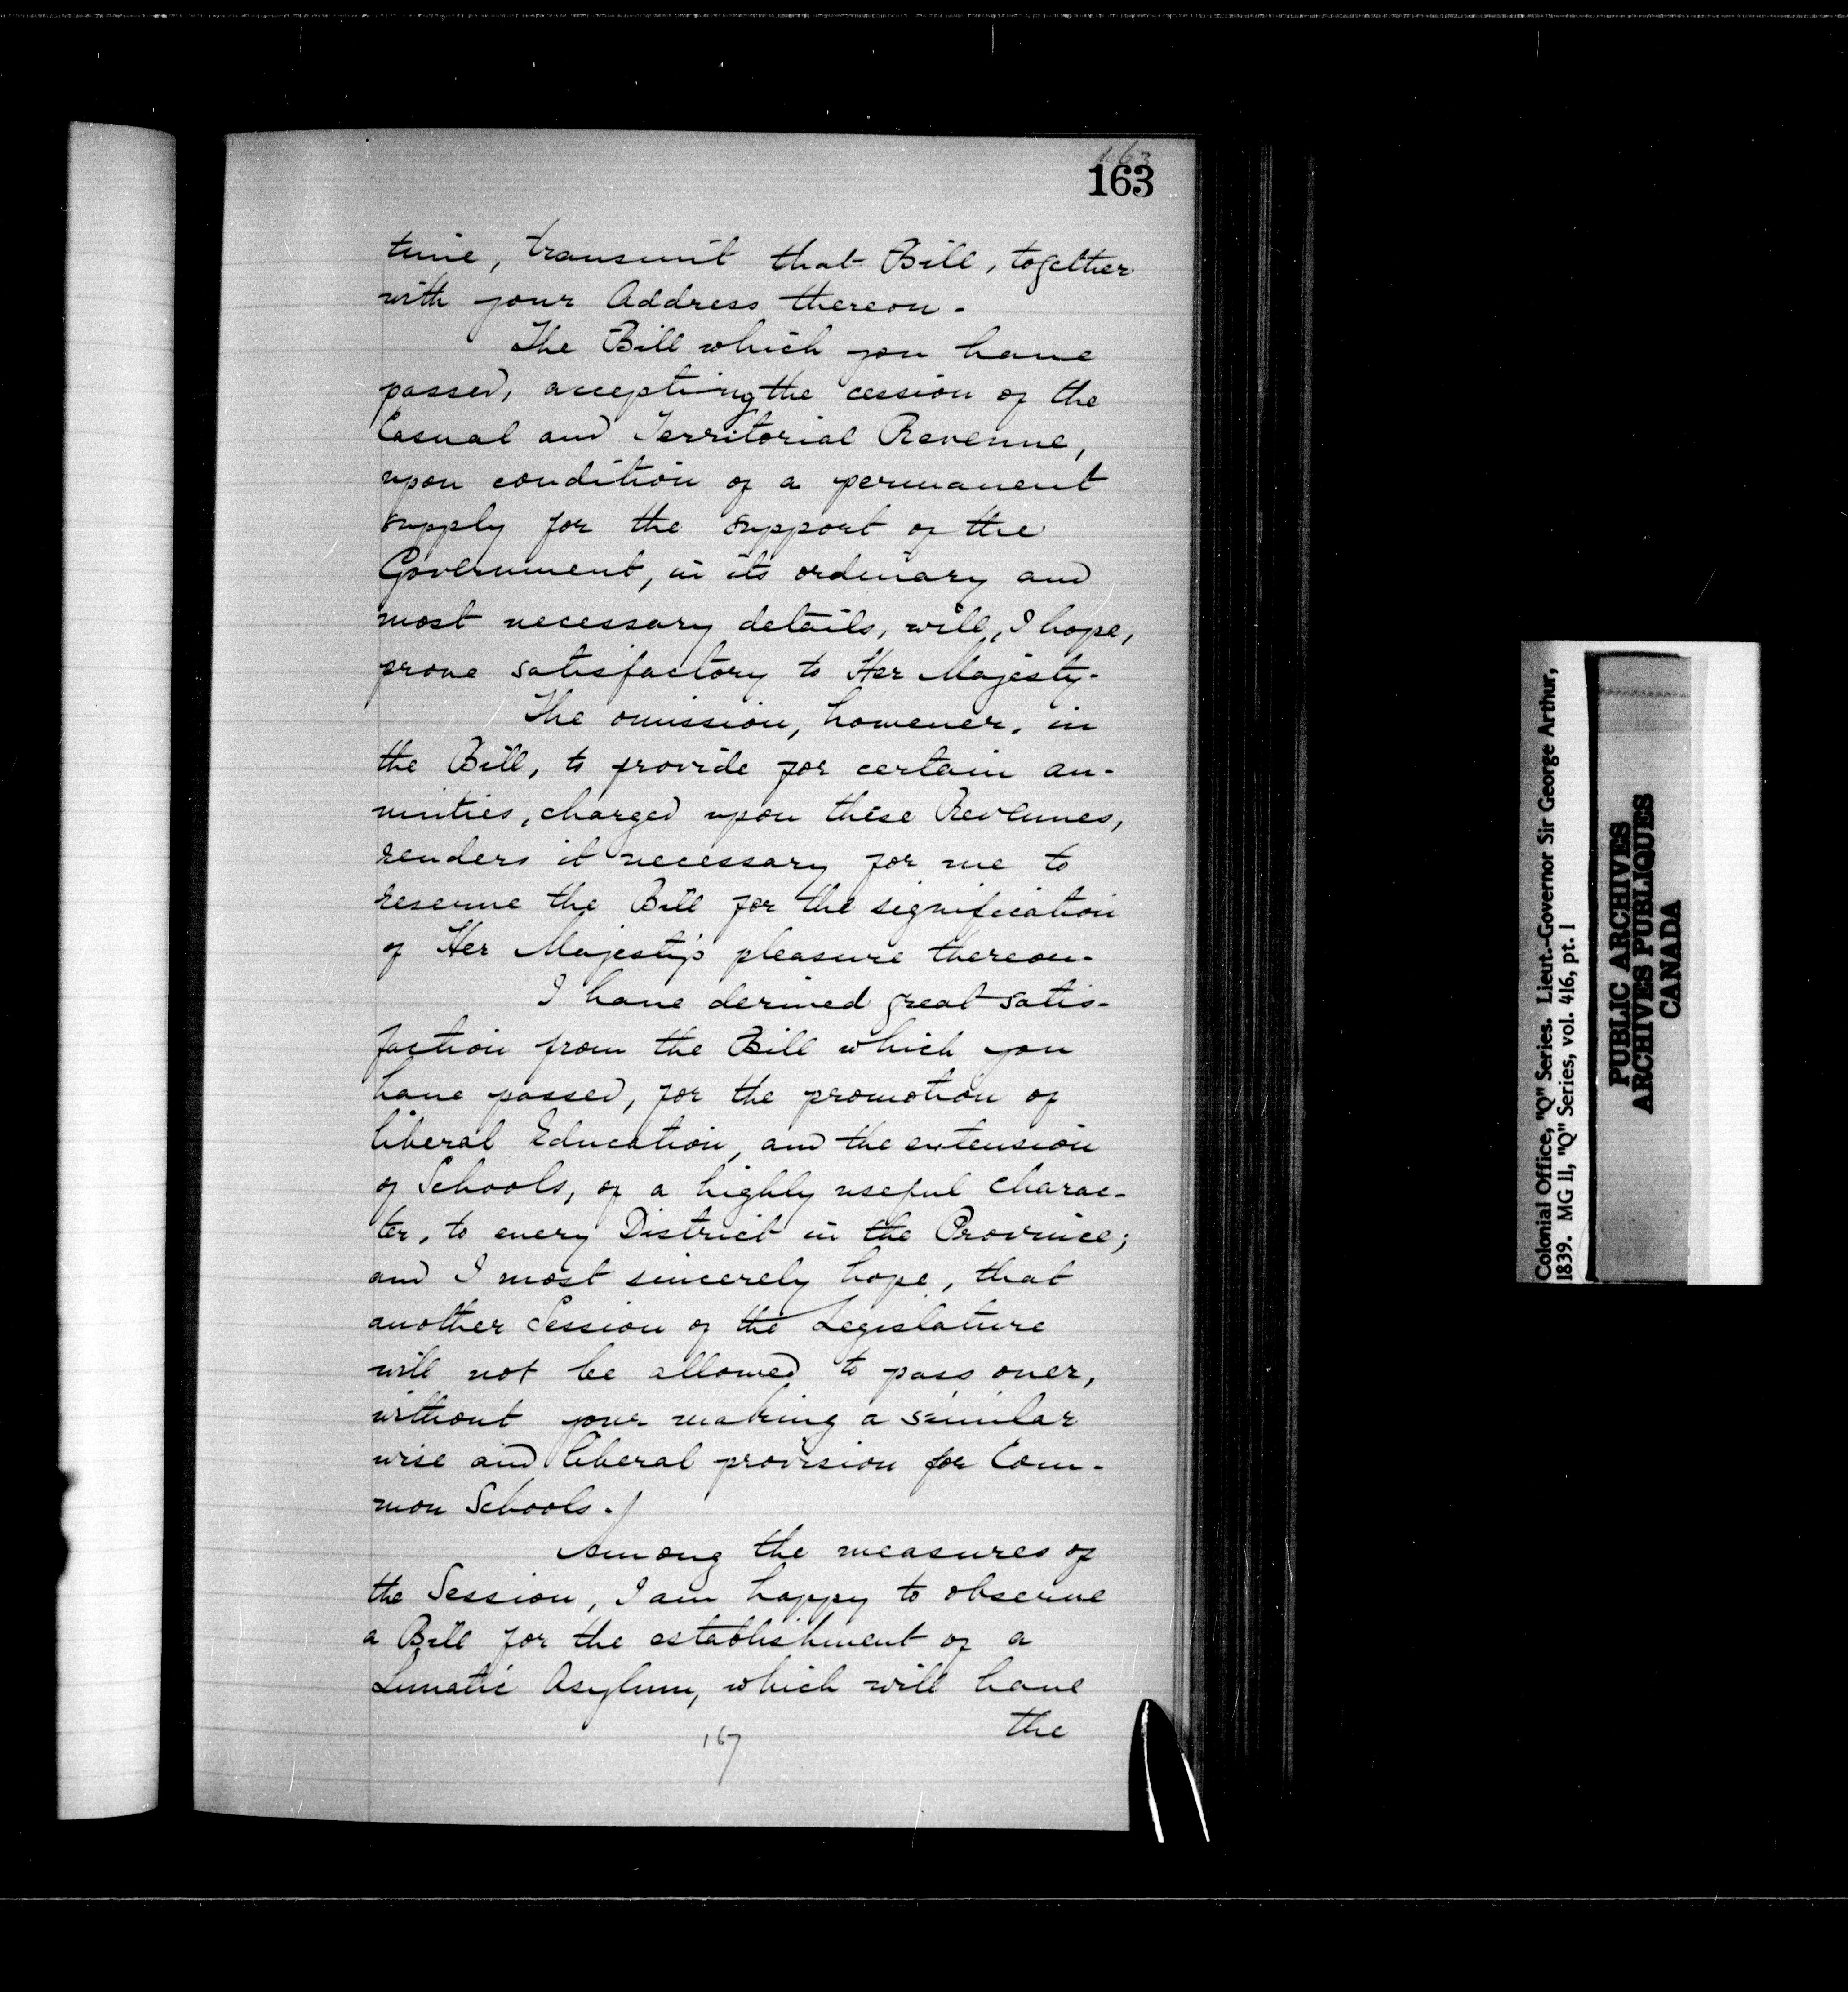 163
163
time, transmit that Bill, together
with your Address thereon.
The Bill which you have
passed, accepting the cession of the
Casual and Territorial Revenue,
upon condition of a permanent
supply for the support of the
Government, in its ordinary and
most necessary details, will, I hope,
prove satisfactory to Her Majesty.
The omission, however, in
the Bill, to provide for certain an-
nuities, charged upon these Revenues,
renders it necessary for me to
reserve the Bill for the signification
of Her Majesty's pleasure thereon.
I have derived great satis-
faction from the Bill which you
have passed, for the promotion of
liberal Education, and the extension
of Schools, of a highly useful charac-
ter, to every District in the Province;
and I most sincerely hope, that
another Session of the Legislature
will not be allowed to pass over,
without your making a similar
wise and liberal provision for Com-
mon Schools.
Among the measures of
the Session, I am happy to observe
a Bill for the establishment of a
Lunatic Asylum, which will have
the
167
Colonial Office, "Q" Series. Lieut.-Governor Sir George Arthur,
1839. MG 11, "Q" Series, vol. 416, pt. 1
PUBLIC ARCHIVES
ARCHIVES PUBLIQUES
CANADA